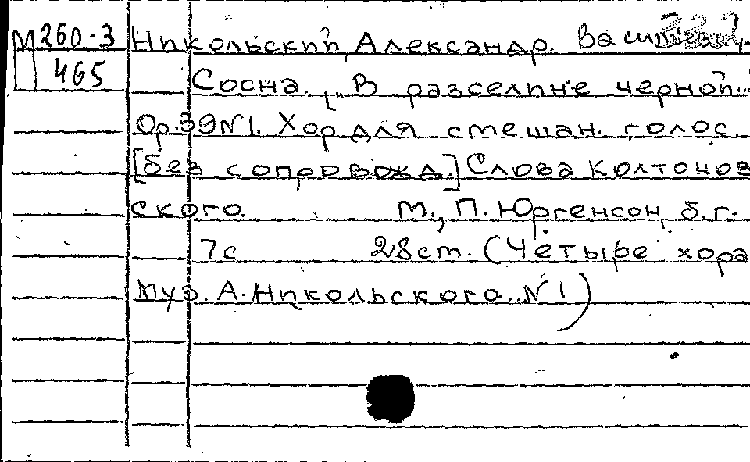 М260-3 Никольский, Александр. Васильевич.
465 Сосна. „В разселине черной...
Ор.39 N1. Хор для смешан. голос
[без сопровожд.] Слова Колтонов
ского. М., П. Юргенсон, б.г.
7с 28ст. (Четыре хора
муз. А. Никольского. N1)